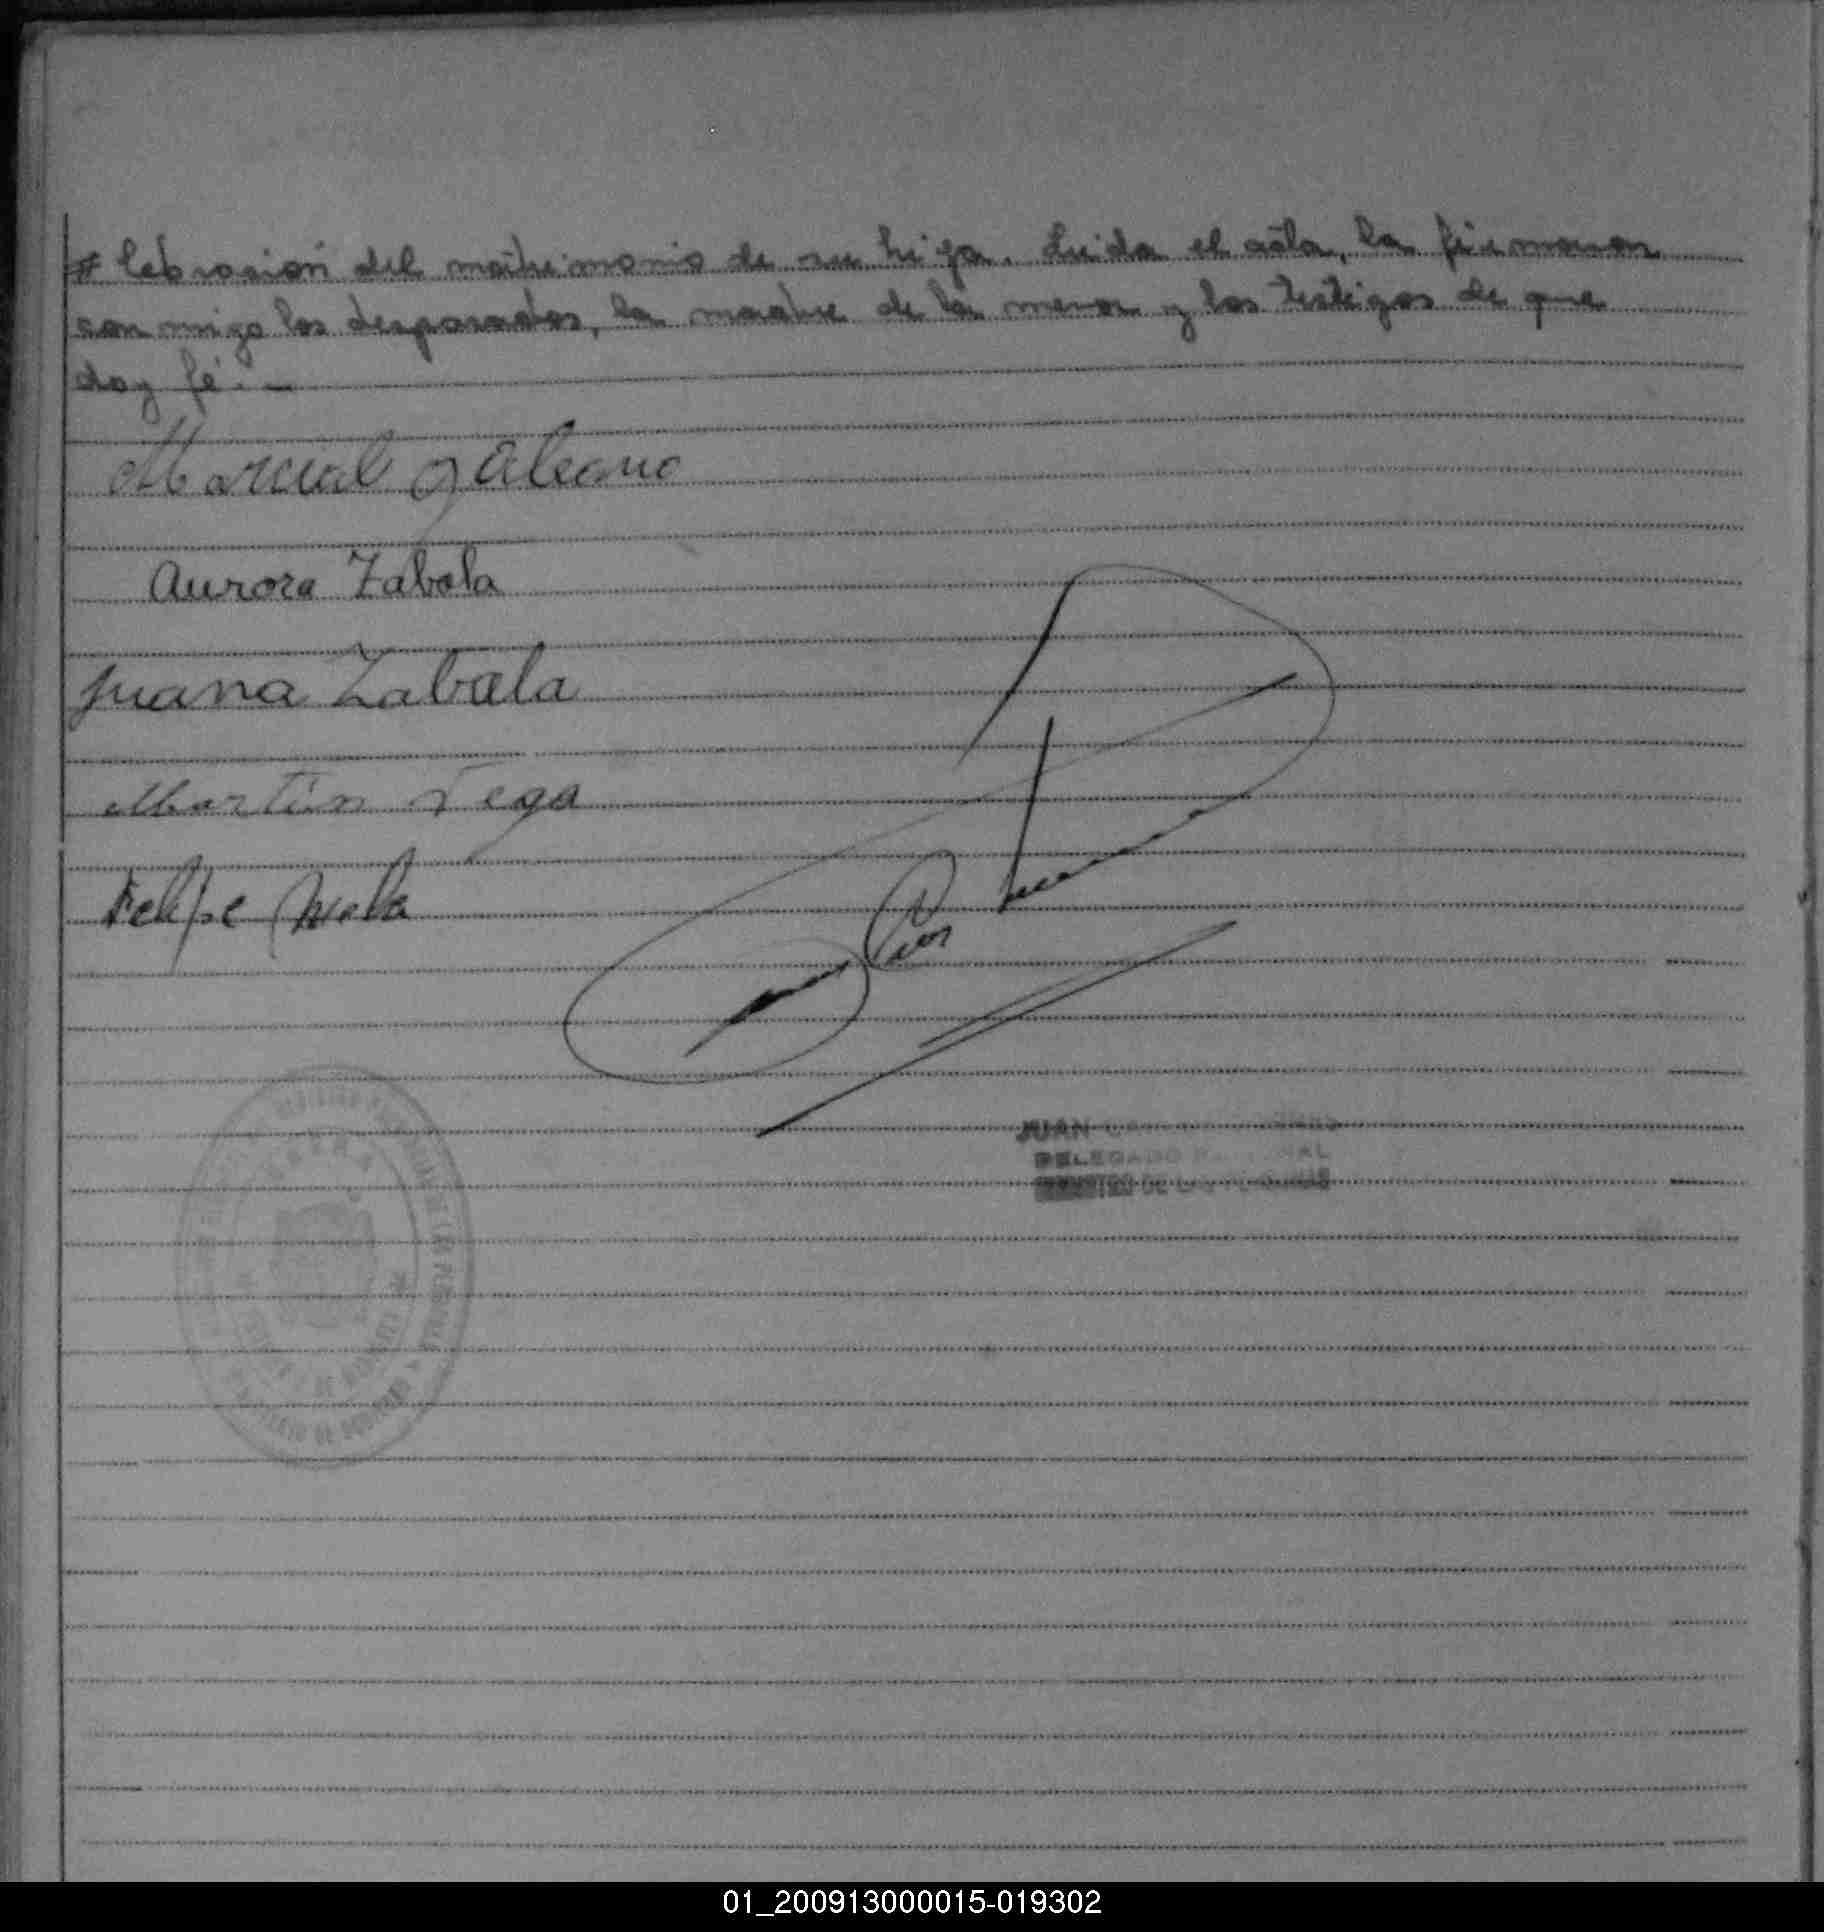 # lebración del matrimonio de su hija. Leida el acta, la firmaron
con migo los desposados, la madre de la menor y los testigos de que
doy fé. -
Marcial Galeano
Aurora Zabala
Juana Zabala
Martín Vega
Felipe
JUAN
DELEGADO
DE LAS
01_200913000015-019302